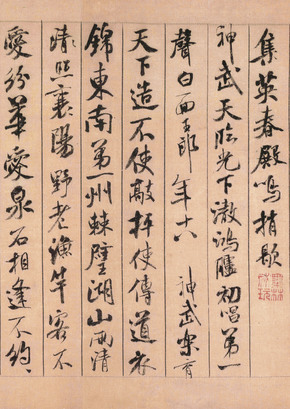 集英春殿鳴梢歇
神武天臨光下澈鴻臚初唱第一
聲白面玉郎年十八 神武樂育
天下造不使敲枰使傳道衣
錦東南第一州棘璧湖山兩清
清照襄陽野老漁竿客不
愛紛華愛泉石相逢不約